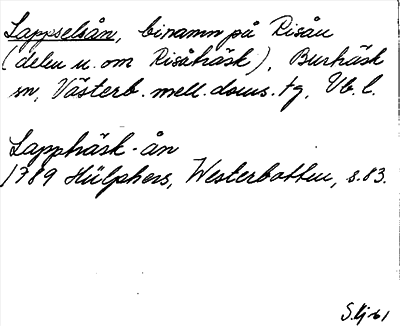 Lappselsån, binamn på Risån
(delen n. om Risåträsk), Burträsk
sn, Västerb. mell. doms. tg, Vb. l.
Lappträsk-ån
1789 Hülphers, Westerbotten, s. 83.